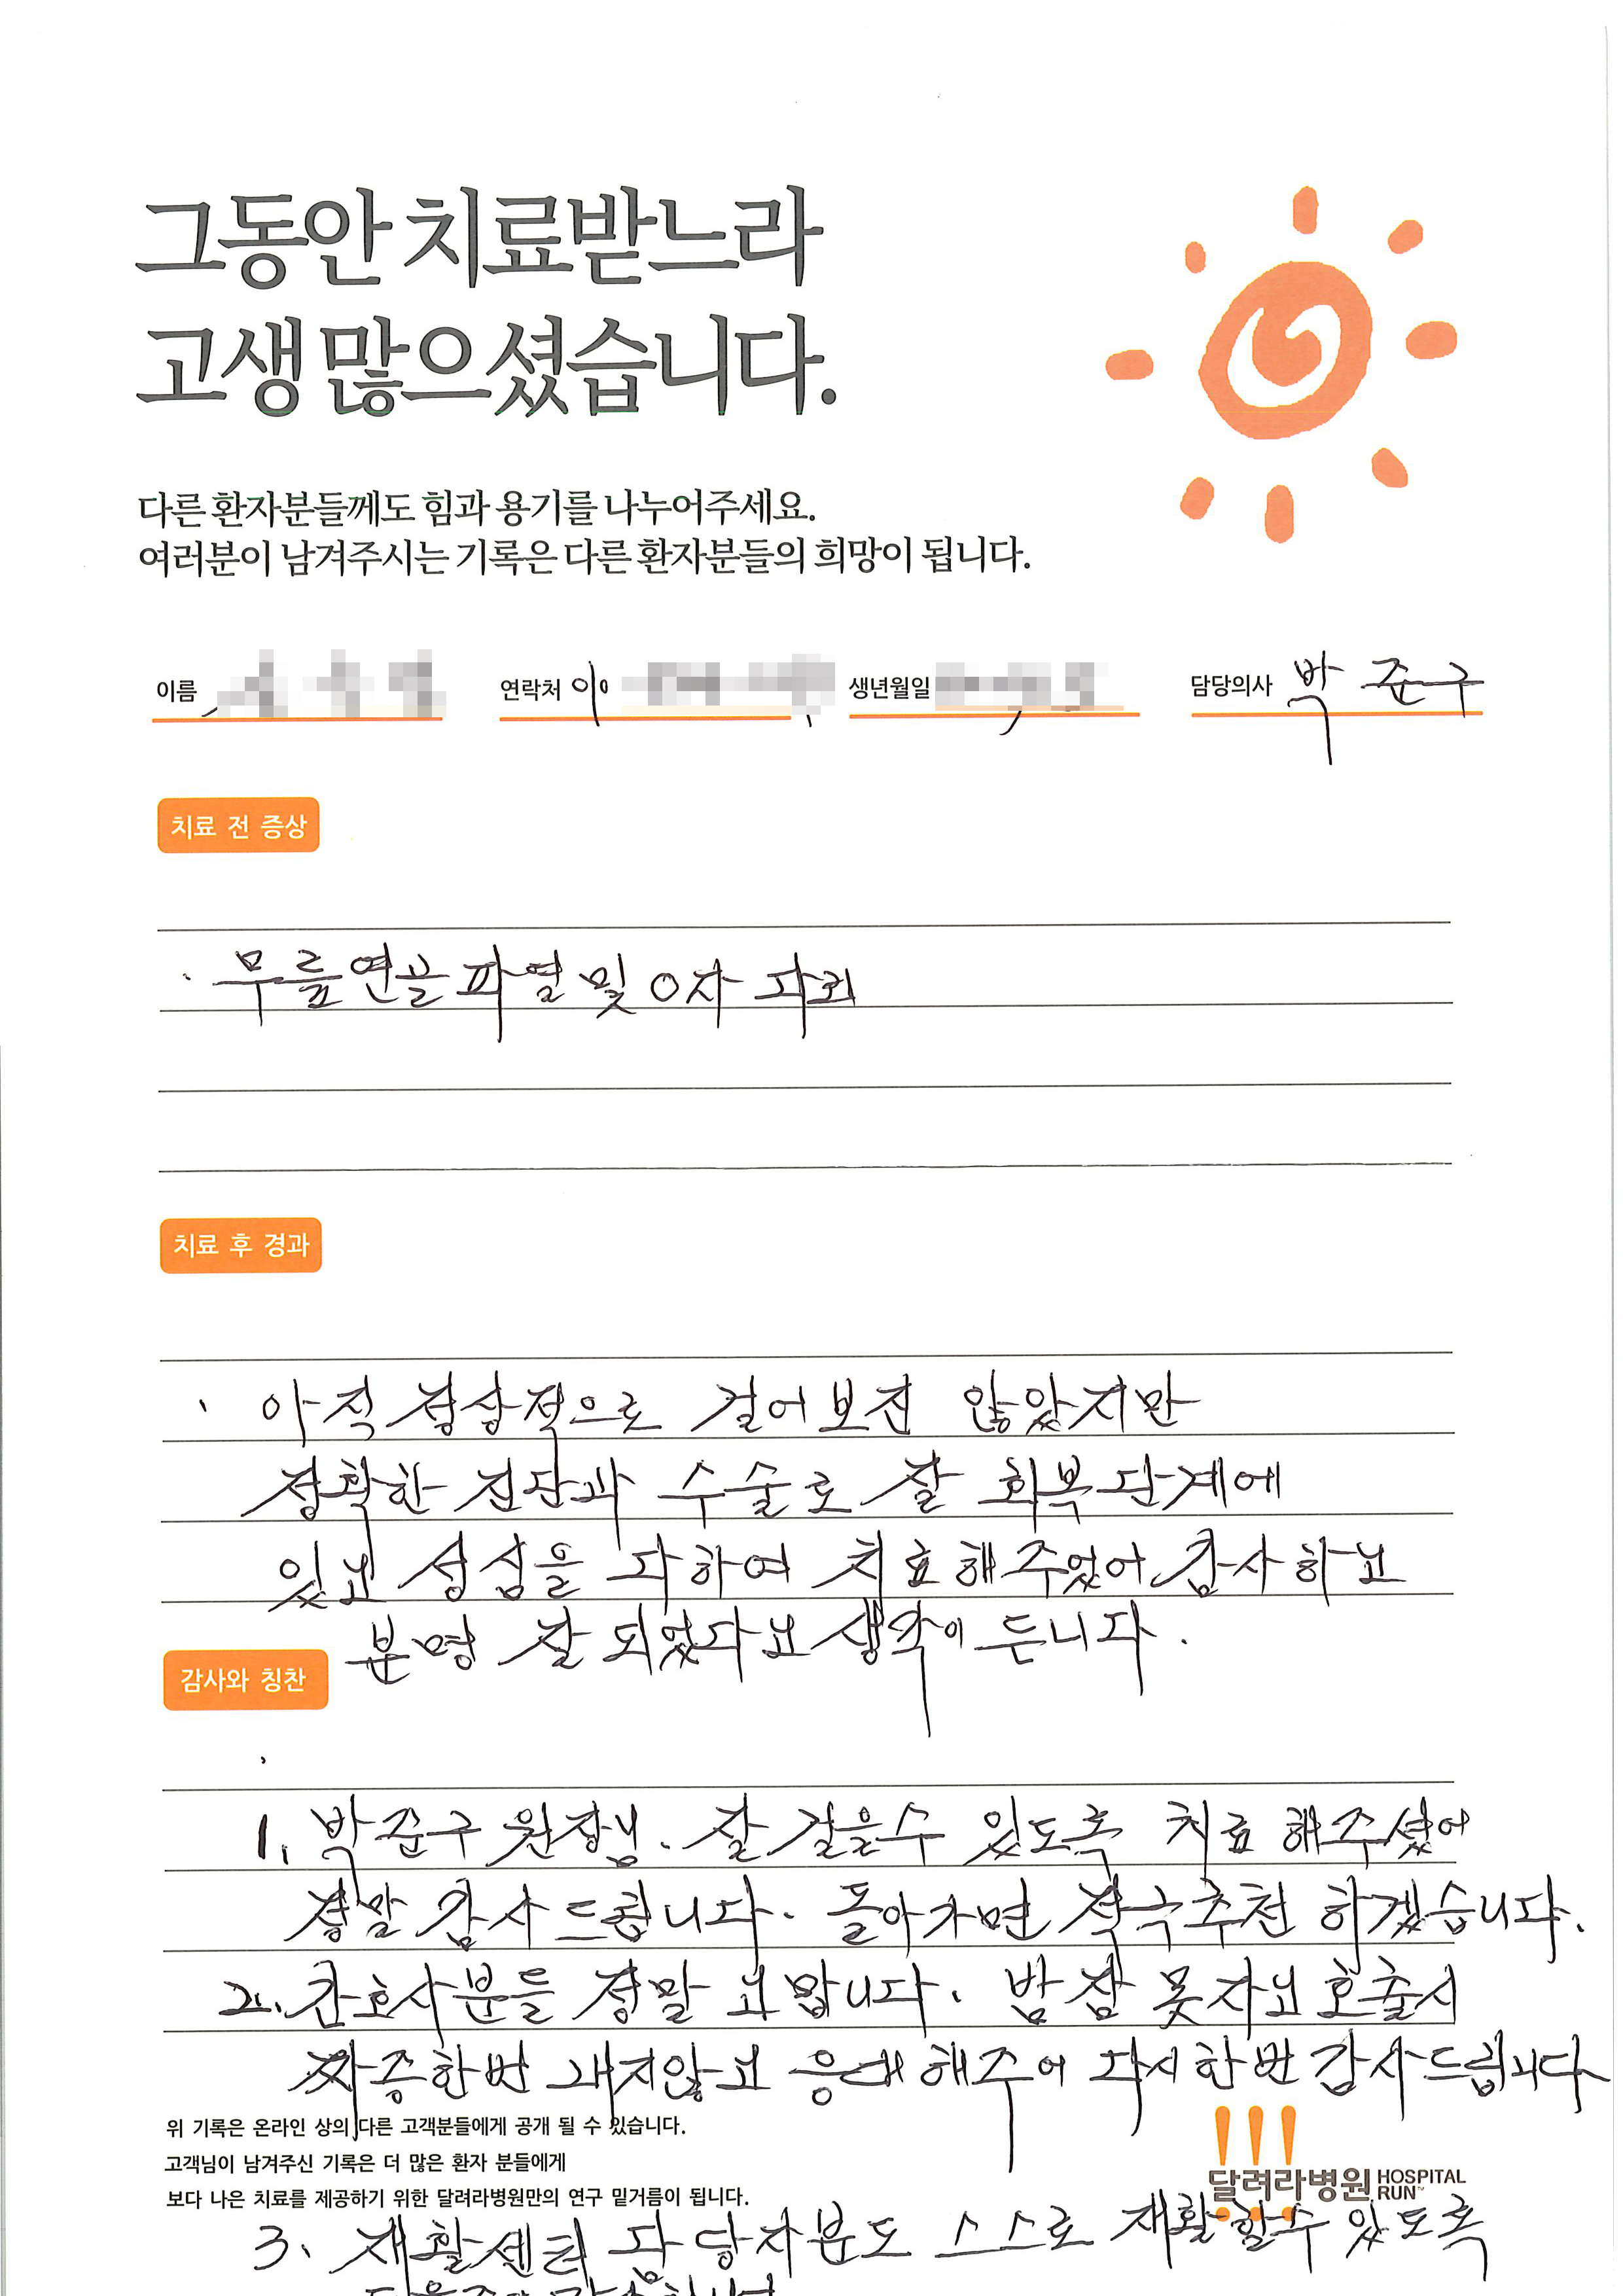 그동안 치료받느라
고생 많으셨습니다.
다른 환자분들께도 힘과 용기를 나누어주세요.
여러분이 남겨주시는 기록은 다른 환자분들의 희망이 됩니다.
이름 연락처 010 생년월일 담당의사 박준구
치료 전 증상
· 무릎연골파열 및 O자 다리
치료 후 경과
· 아직 정상적으로 걸어보진 않았지만
정확한 진단과 수술로 잘 회복단계에
있고 성심을 다하여 치료해주었어 감사하고
분명 잘 되었다고 생각이 든니다.
감사와 칭찬
1. 박준구 원장님. 잘 걸을수 있도록 치료 해주셨어
정말 감사드립니다. 돌아가면 적극추천 하겠습니다.
2. 간호사분들 정말 고맙니다. 밤잠 못자고 호출시
짜증한번 내지않고 응대해주어 다시한번 감사드립니다
위 기록은 온라인 상의 다른 고객분들에게 공개 될 수 있습니다.
고객님이 남겨주신 기록은 더 많은 환자 분들에게
보다 나은 치료를 제공하기 위한 달려라병원만의 연구 밑거름이 됩니다.
달려라병원 HOSPITAL RUN
3. 재활센터 담당자분도 스스로 재활할수 있도록